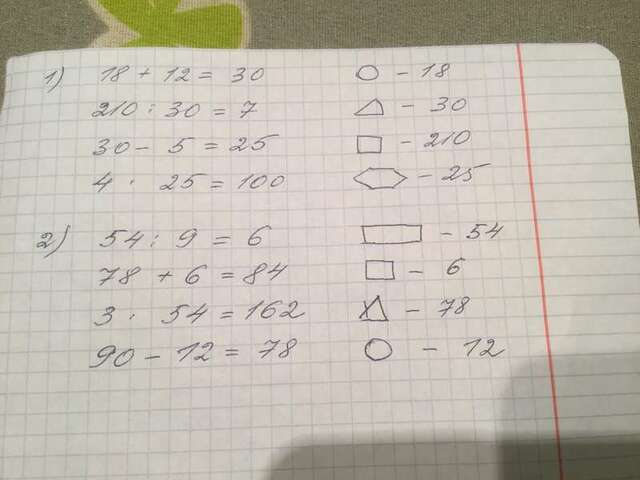 1) 18 + 12 = 30 ○ - 18
210 : 30 = 7 △ - 30
30 - 5 = 25 □ - 210
4 · 25 = 100 ⬡ - 25
2) 54 : 9 = 6 ▭ - 54
78 + 6 = 84 □ - 6
3 · 54 = 162 △ - 78
90 - 12 = 78 ○ - 12